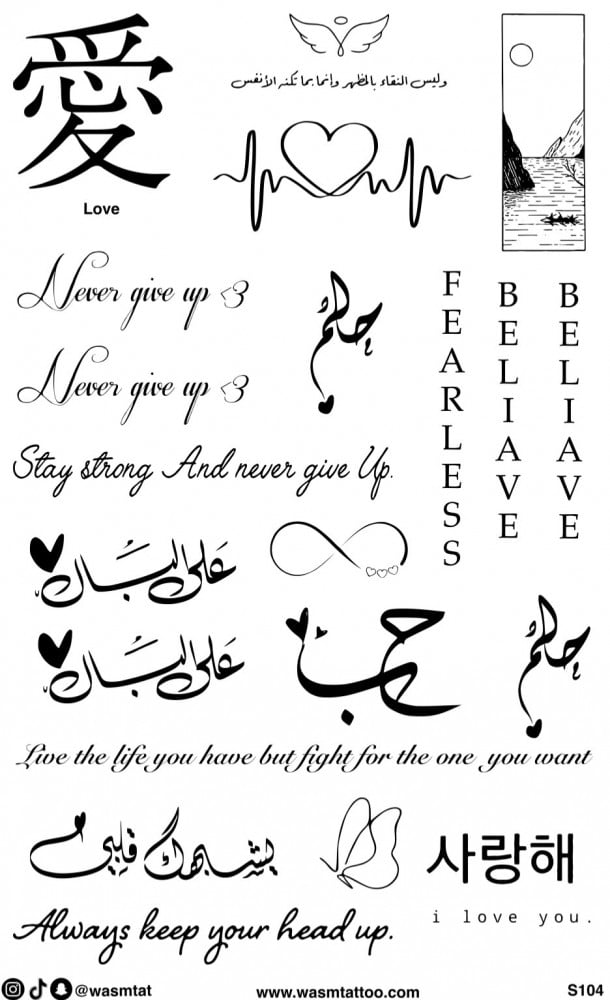 愛
Love
وليس النقاء بالمظهر وإنما بما تكنه الأنفس
Never give up <3
Never give up <3
Stay strong And never give Up.
حلم
FEARLESS
BELIAVE
BELIAVE
على البال
على البال
حب
حلم
Live the life you have but fight for the one you want
يشبهك قلبي
사랑해
i love you.
Always keep your head up.
@wasmtat
www.wasmtattoo.com
S104